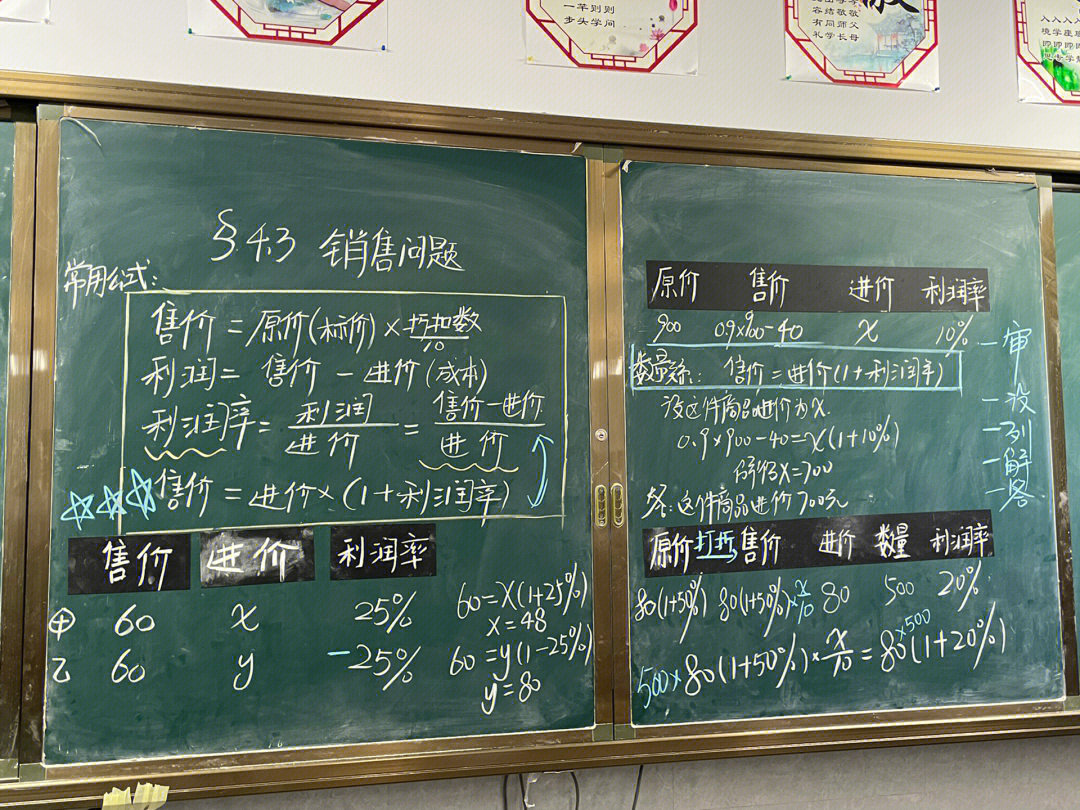 一竿则则
步头学问
容结敬敬
有同师父
礼学长母
§4.3 销售问题
常用公式:
售价=原价(标价)×折扣数/10
利润=售价-进价(成本)
利润率=利润/进价=售价-进价/进价
售价=进价×(1+利润率)
售价 进价 利润率
甲 60 x 25% 60=x(1+25%)
x=48
乙 60 y -25% 60=y(1-25%)
y=80
原价 售价 进价 利润率
900 0.9×900-40 x 10%
数量关系: 售价=进价(1+利润率)
设这件商品进价为x.
0.9×900-40=x(1+10%)
解得x=700
答:这件商品进价700元
一审
一设
一列
一解
一答
原价 打折 售价 进价 数量 利润率
80(1+50%) 80(1+50%)×x/10 80 500 20%
500×80(1+50%)×x/10=80×500(1+20%)